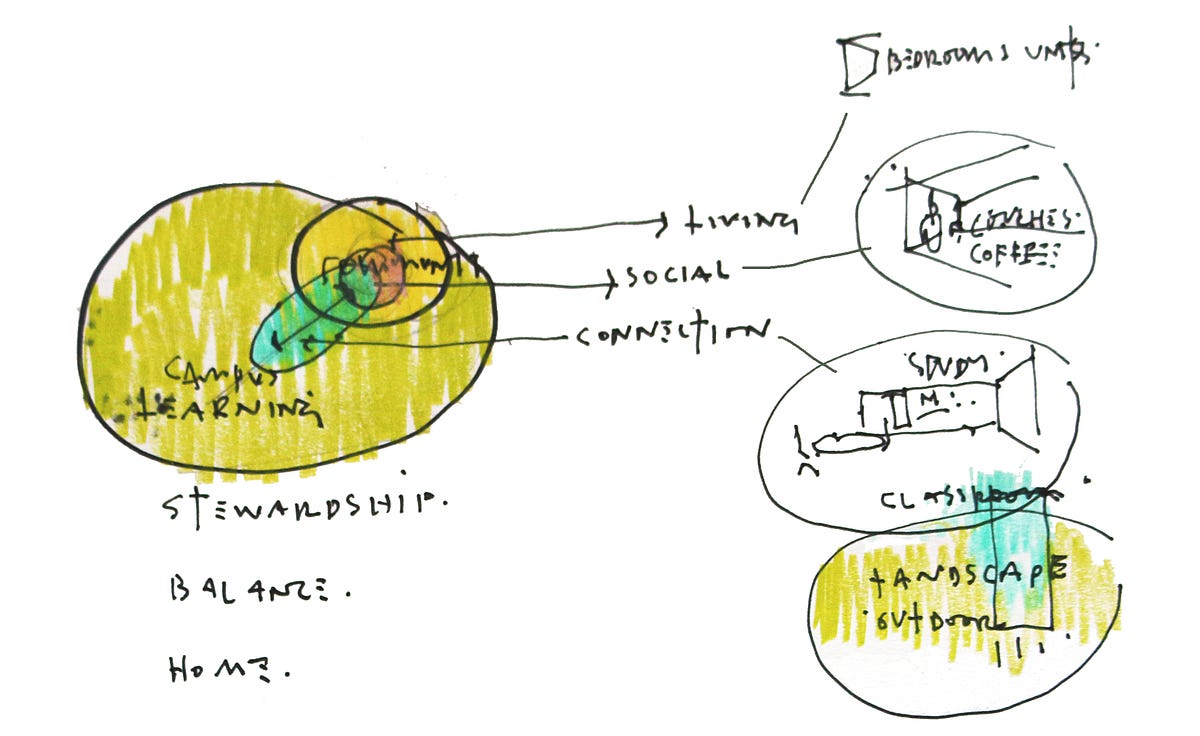 BEDROOMS UNITS.
LIVING
COMMUNITY
SOCIAL
COUCHES.
COFFEE
CONNECTION
STUDY
CAMPUS
LEARNING
M
CLASSROOM
STEWARDSHIP.
LANDSCAPE
OUTDOOR
BALANCE.
HOME.